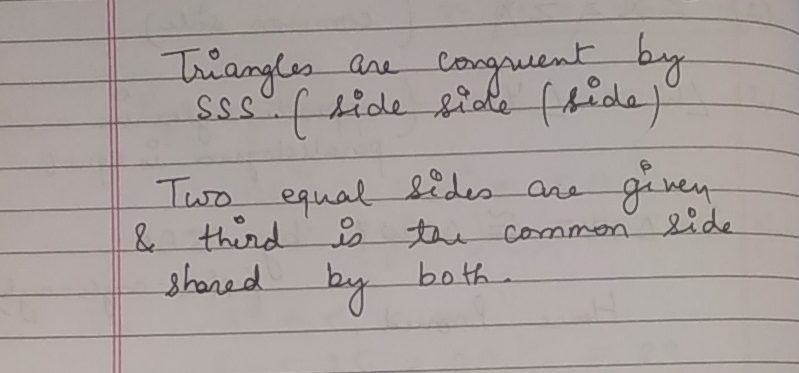 Triangles are congruent by
SSS. ( side side (side)
Two equal sides are given
& third is the common side
shared by both.